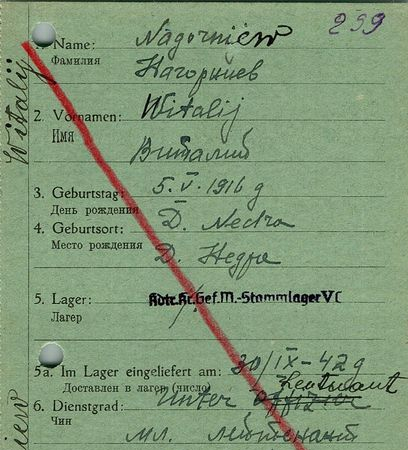 239
1. Name: Nagorniew
Фамилия Нагорниев
2. Vornamen: Witalij
Имя Виталий
3. Geburtstag: 5.V.1916 g
День рождения
4. Geburtsort: D. Nedra
Место рождения Д. Недра
5. Lager: Kdtr.Kr.Gef.M.-Stammlager V
Лагер
5a. Im Lager eingeliefert am: 30/IX-42 g
Доставлен в лагер (число) Leutnant
6. Dienstgrad: Unter offizier
Чин мл. лейтенант
Witalij